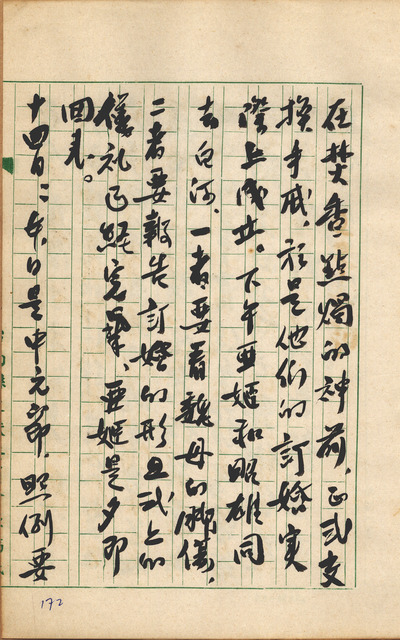 在焚香點燭的神前，正式交
換手戒，於是他們的訂婚实
際上成立。下午亜姬和昭雄同
去白河，一者要看魏母的脚，
二者要報告訂婚的形式上的
儀礼已経完畢，亜姬是夕即
回来。
十四日：本日是中元節，照例要
172